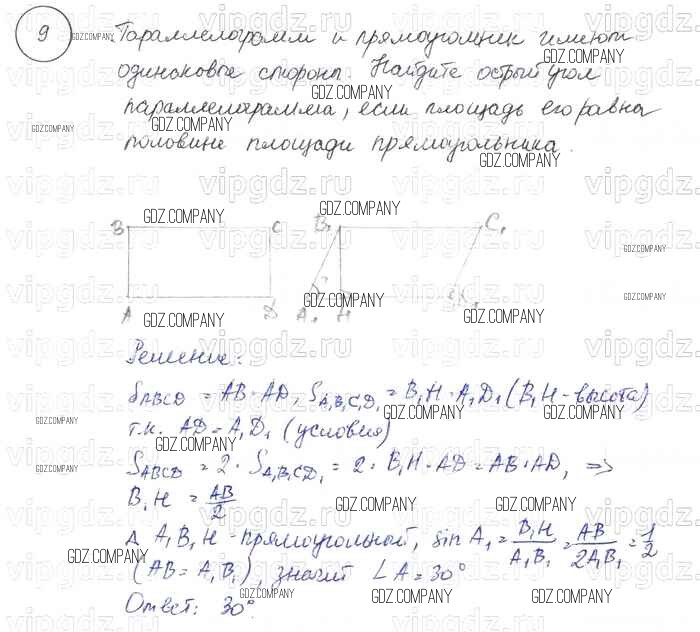 9
Параллелограмм и прямоугольник имеют
одинаковые стороны. Найдите острый угол
параллелограмма, если площадь его равна
половине площади прямоугольника.
B C B₁ C₁
A D A₁ H D₁
Решение:
S_ABCD = AB · AD, S_A₁B₁C₁D₁ = B₁H · A₁D₁ (B₁H - высота)
т.к. AD = A₁D₁ (условия)
S_ABCD = 2 · S_A₁B₁C₁D₁ = 2 · B₁H · AD = AB · AD, =>
B₁H = AB/2
Δ A₁B₁H - прямоугольной, sin A₁ = B₁H/A₁B₁ = AB/2A₁B₁ = 1/2
(AB = A₁B₁), значит ∠A = 30°
Ответ: 30°.
vipgdz.ru
GDZ.COMPANY